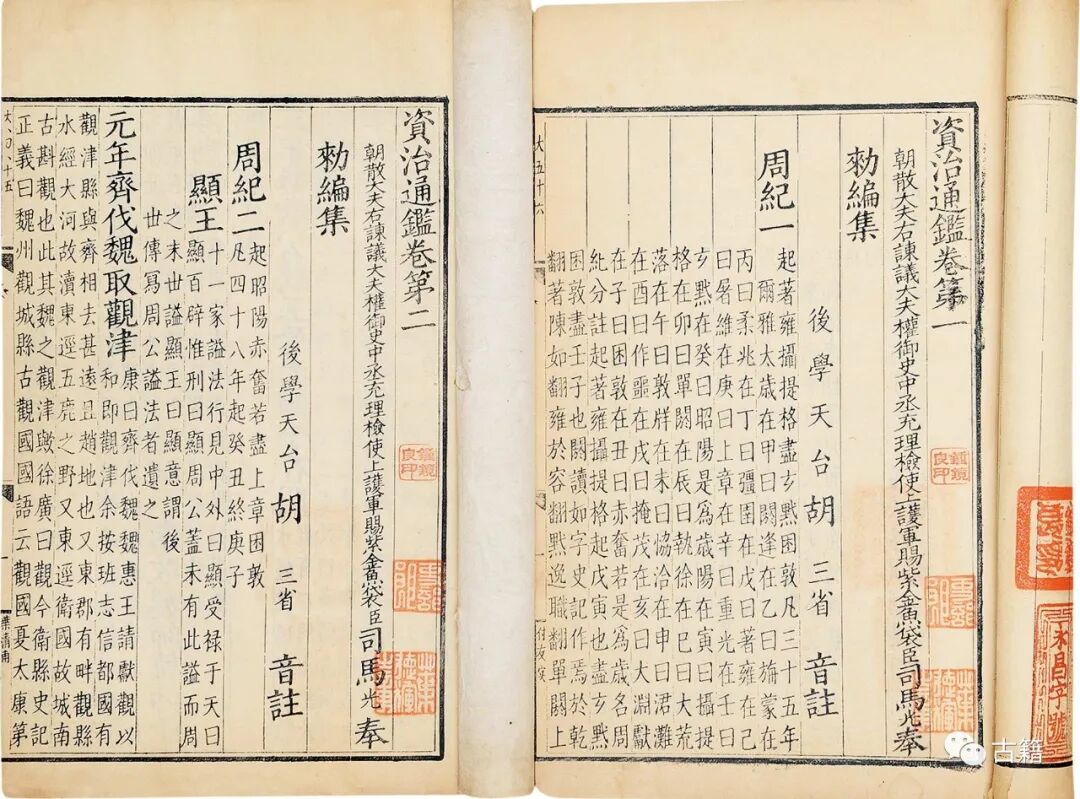 資治通鑑卷第一
朝散大夫右諫議大夫權御史中丞充理檢使上護軍賜紫金魚袋臣司馬光奉
勑編集
後學天台胡三省音註
周紀一起著雍攝提格盡玄黓困敦凡三十五年
爾雅太歲在甲曰閼逢在乙曰旃蒙在
丙曰柔兆在丁曰彊圉在戊曰著雍在己
曰屠維在庚曰上章在辛曰重光在壬曰
玄黓在癸曰昭陽是爲歲陽在寅曰攝提
格在卯曰單閼在辰曰執徐在巳曰大荒
落在午曰敦牂在未曰協洽在申曰涒灘
在酉曰作噩在戌曰掩茂在亥曰大淵獻
在子曰困敦在丑曰赤奮若是爲歲名周
紀分註起著雍攝提格起戊寅也盡玄黓
困敦盡壬子也閼讀如字史記作焉於乾
翻著陳如翻雍於容翻黓逸職翻單閼上
大五十六
資治通鑑卷第二
朝散大夫右諫議大夫權御史中丞充理檢使上護軍賜紫金魚袋臣司馬光奉
勑編集
後學天台胡三省音註
周紀二起昭陽赤奮若盡上章困敦
凡四十八年起癸丑終庚子
顯王十一家謚法行見中外曰顯受禄于天曰
顯百辟惟刑曰顯周公蓋未有此謚而周
之末世謚顯王曰顯意謂後
世傳寫周公謚法者遺之
元年齊伐魏取觀津康曰齊伐魏魏惠王請獻觀以
和即觀津余按班志信都國有
觀津縣與齊相去甚遠且趙地也又東郡有畔觀縣
水經大河故瀆東逕五鹿之野又東逕衛國故城南
古斟觀也此其魏之觀津歟徐廣曰觀今衛縣史記
正義曰魏州觀城縣古觀國國語云觀國夏太康第
葉清甫
永昌字號
古籍